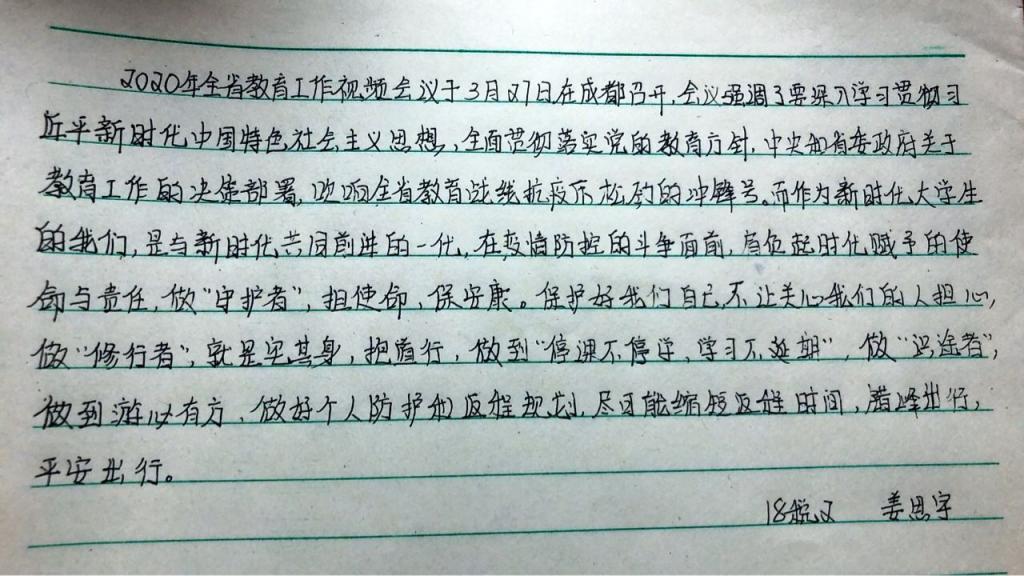 2020年全省教育工作视频会议于3月27日在成都召开,会议强调了要深入学习贯彻习
近平新时代中国特色社会主义思想,全面贯彻落实党的教育方针,中央和省委政府关于
教育工作的决策部署,吹响全省教育战线抗疫不松劲的冲锋号。而作为新时代大学生
的我们,是与新时代共同前进的一代,在疫情防控的斗争面前,肩负起时代赋予的使
命与责任,做“守护者”,担使命,保安康。保护好我们自己,不让关心我们的人担心,
做“修行者”,就是宅其身,抱道行,做到“停课不停学,学习不延期”,做“识途者”,
做到游必有方、做好个人防护和返程规划,尽可能缩短返程时间,错峰出行,
平安出行。
18税双 姜思宇